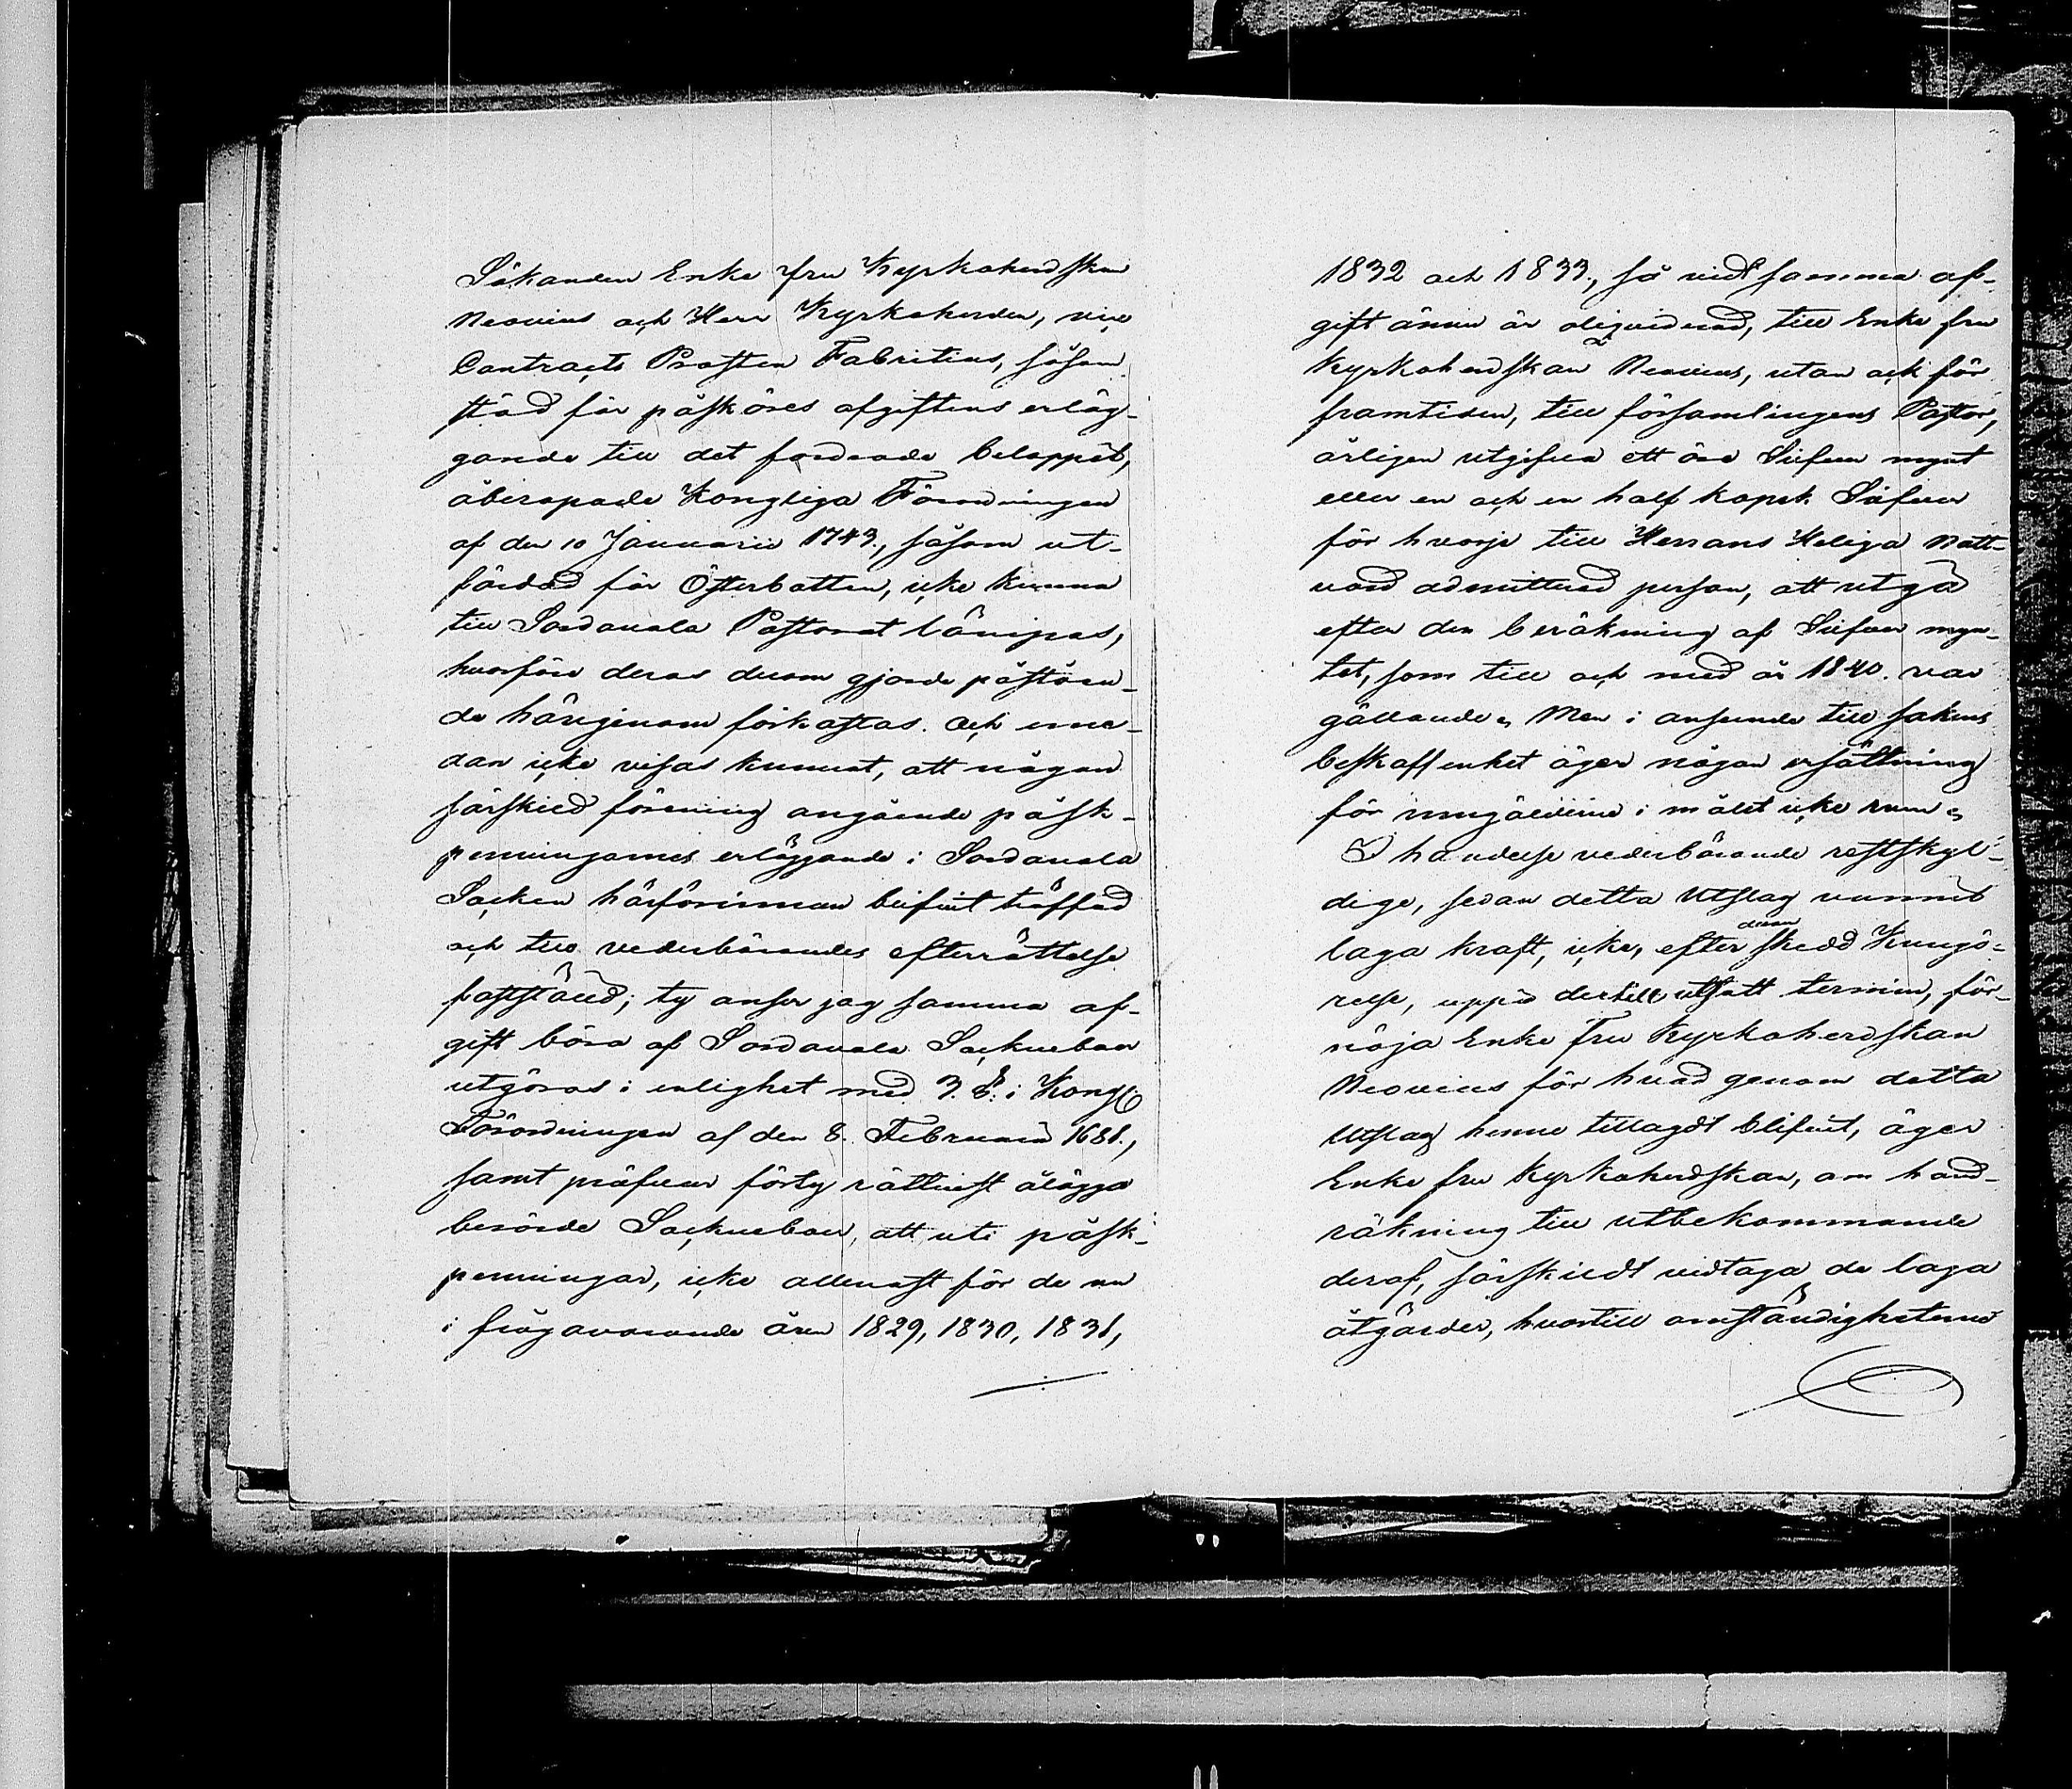 Sökanden Enke fru Kyrkoherdskan
Neovius och Herr Kyrkoherden, vice
Contracts Prosten Fabritius, såsom
stöd för påsköres afgiftens erläg-
gande till det fordrade beloppet,
åberopade Kongliga Förordningen
af den 10 Januarii 1743., såsom ut-
färdad för Österbotten, icke kunna
till Sordavala Pastorat lämpas,
hvarföre deras derom gjorde påståen-
de härigenom förkastas. Och eme-
dan icke visas kunnat, att någon
särskild förening angående påsk-
penningarnes erläggande i Sordavala
Socken härförinnan blifvit träffad
och till vederbörandes efterrättelse
fastställd; ty anser jag samma af-
gift böra af Sordavala Sockneboer
utgöras i enlighet med 3. §. i Kongl.
Förordningen af den 8. Februarii 1681.,
samt pröfvar förty rättvist ålägga
berörde Sockneboer, att uti påsk-
penningar, icke allenast för de nu
i frågavarande åren 1829, 1830, 1831,
1832 och 1833., så vidt samma af-
gift ännu är oliquiderad, till Enke fru
Kyrkoherdskan Neovius, utan ock för
framtiden, till församlingens Pastor,
årligen utgifva ett öre Silfver mynt
eller en och en half kopek Silfver
för hvarje till Herrans Heliga Natt-
vard admitterad person, att utgå
efter den beräkning af Silfver myn-
tet, som till och med år 1840. var
gällande. Men i anseende till sakens
beskaffenhet äger någon ersättning
för inngälderne i målet icke rum.
I händelse vederbörande restskyl-
dige, sedan detta Utslag vunnit
laga kraft, icke, efter derom skedd Kungö-
relse, uppå dertill utsatt termin, för-
nöja Enke Fru Kyrkoherdskan
Neovius för hvad genom detta
Utslag henne tillagdt blifvit, äger
Enke fru Kyrkoherdskan, om hand-
räkning till utbekommande
deraf, särskildt vidtaga de laga
åtgärder, hvartill omständigheterne